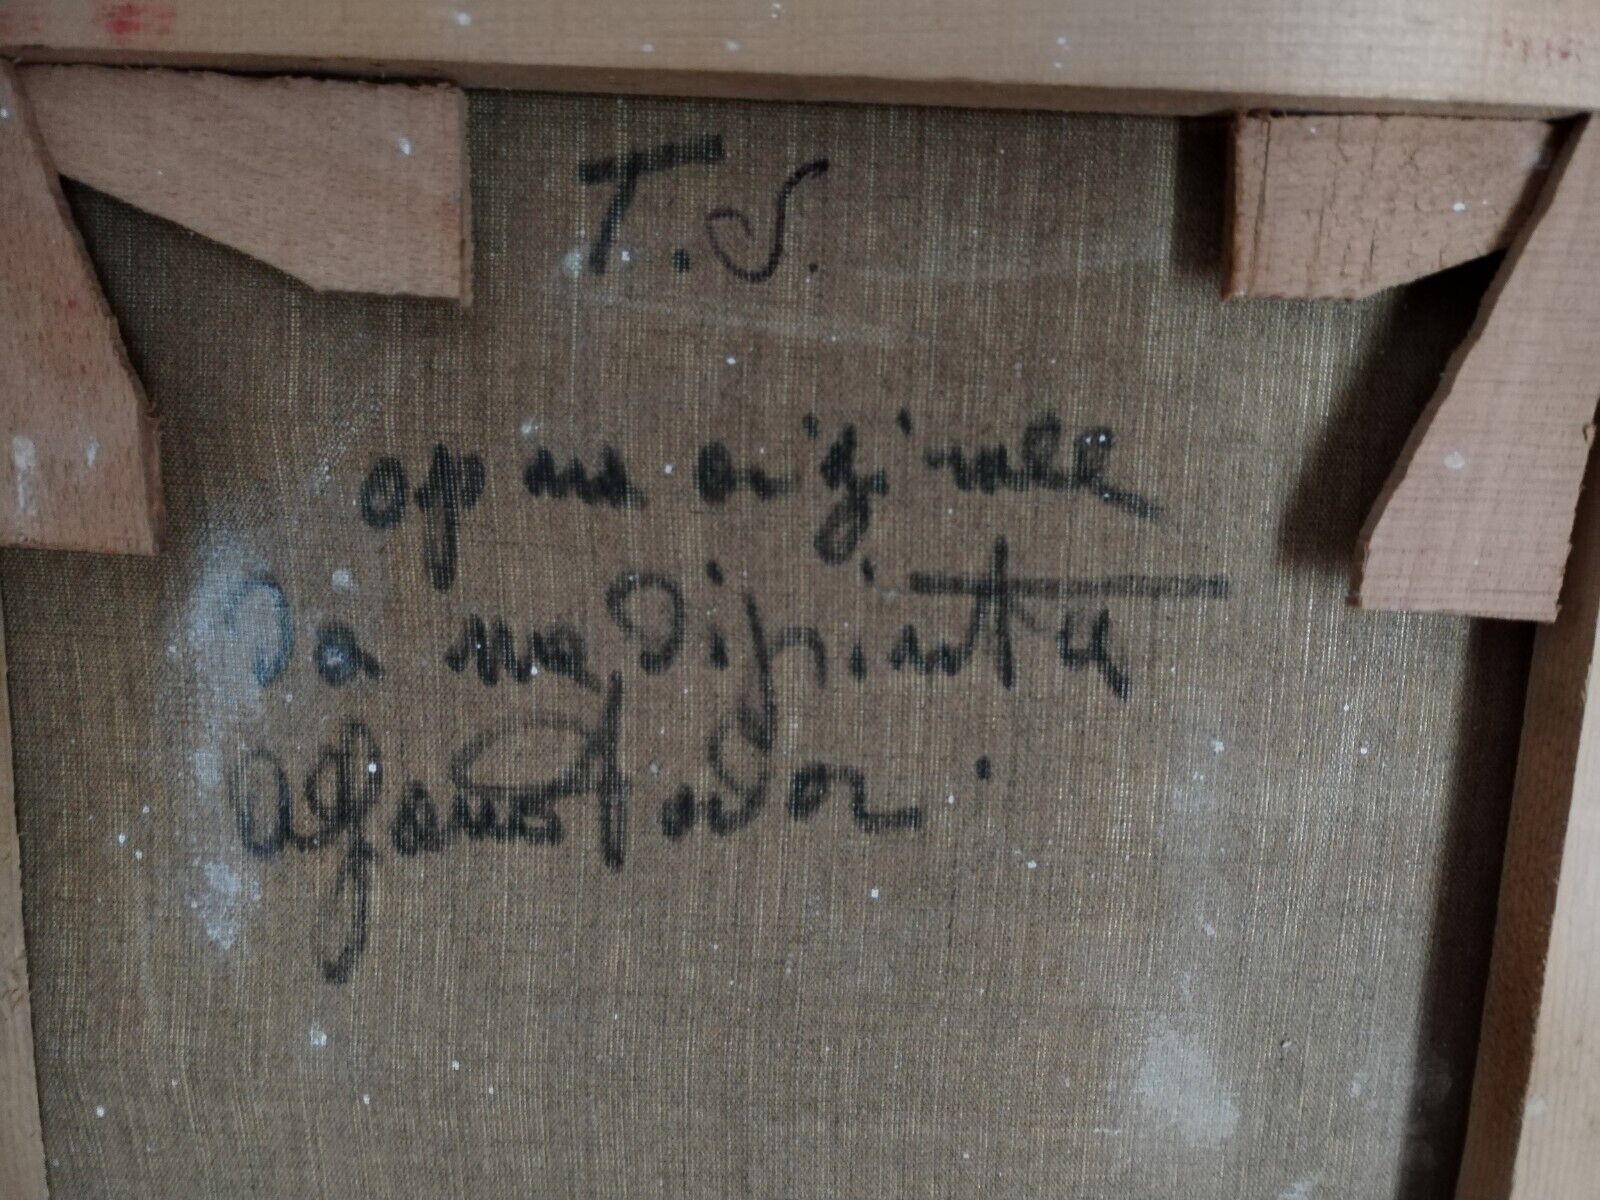 T.S.
opera originale
da me dipinta
Afans